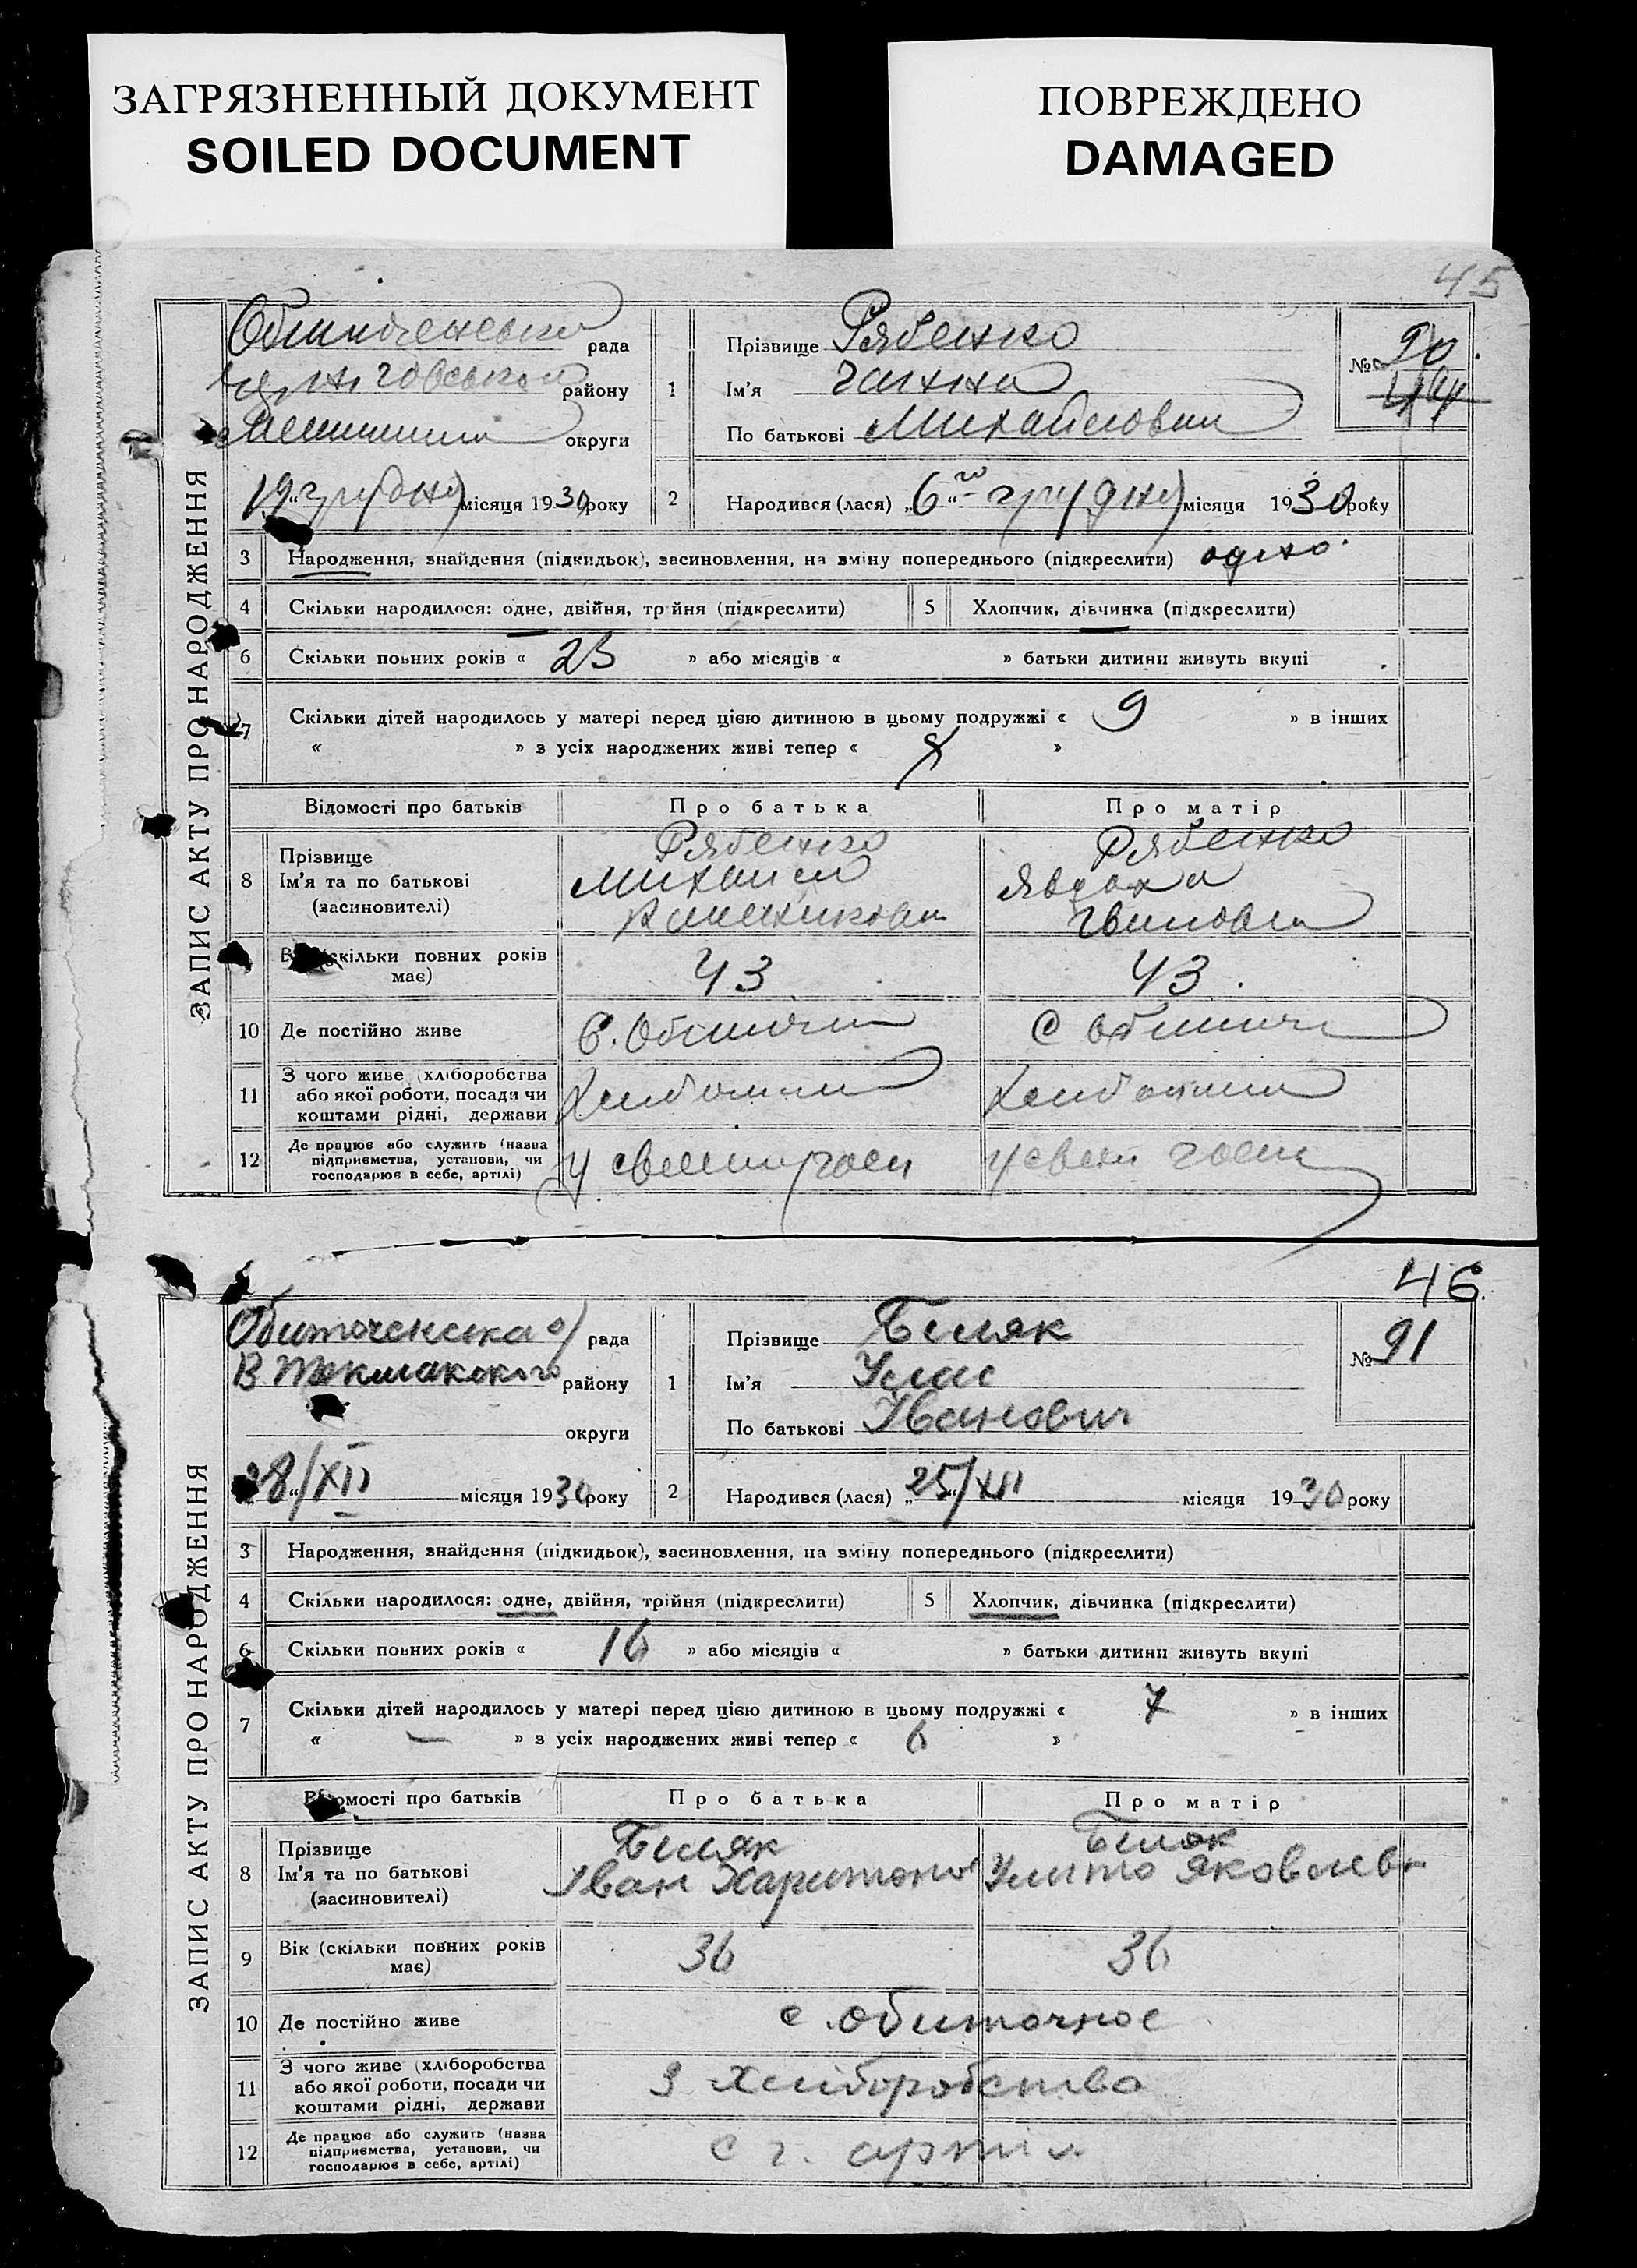 ЗАГРЯЗНЕННЫЙ ДОКУМЕНТ
SOILED DOCUMENT
ПОВРЕЖДЕНО
DAMAGED
45
ЗАПИС АКТУ ПРО НАРОДЖЕННЯ
рада
району
округи
19 грудня місяця 1930 року
1
Прізвище Рябенко
Ім'я Ганна
По батькові Михайловна
№ 90.
44
2 Народився (лася) „6“го грудня місяця 1930 року
3 Народження, знайдення (підкидьок), засиновлення, на зміну попереднього (підкреслити) одно.
4 Скільки народилося: одне, двійня, трійня (підкреслити)
5 Хлопчик, дівчинка (підкреслити)
6 Скільки повних років « 23 » або місяців « » батьки дитини живуть вкупі
7 Скільки дітей народилось у матері перед цією дитиною в цьому подружжі « 9 » в інших
« » з усіх народжених живі тепер « »
Відомості про батьків Про батька Про матір
8 Прізвище
Ім'я та по батькові
(засиновителі)
Рябенко
Михаил
Рябенко
Явдоха
Вік (скільки повних років має) 43 43.
10 Де постійно живе
11 З чого живе (хліборобства або якої роботи, посади чи коштами рідні, держави
12 Де працює або служить (назва підприємства, установи, чи господарює в себе, артілі)
46.
ЗАПИС АКТУ ПРО НАРОДЖЕННЯ
Обиточенська рада
В Токмакского району
округи
28/XII місяця 1930 року
1
Прізвище Біляк
Ім'я Улас
По батькові Іванович
№ 91
2 Народився (лася) „25/XII місяця 1930 року
3 Народження, знайдення (підкидьок), засиновлення, на зміну попереднього (підкреслити)
4 Скільки народилося: одне, двійня, трійня (підкреслити)
5 Хлопчик, дівчинка (підкреслити)
6 Скільки повних років « 16 » або місяців « » батьки дитини живуть вкупі
7 Скільки дітей народилось у матері перед цією дитиною в цьому подружжі « 7 » в інших
« — » з усіх народжених живі тепер « 6 »
Відомості про батьків Про батька Про матір
8 Прізвище
Ім'я та по батькові
(засиновителі)
Біляк
Іван
Біляк
Яковлевн
9 Вік (скільки повних років має) 36 36
10 Де постійно живе с. Обиточное
11 З чого живе (хліборобства або якої роботи, посади чи коштами рідні, держави З хліборобства
12 Де працює або служить (назва підприємства, установи, чи господарює в себе, артілі) с г. артіл